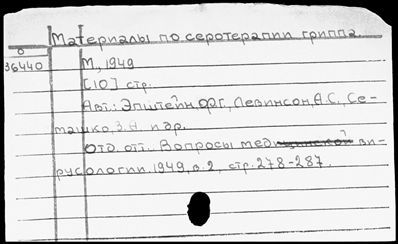 Материалы по серотерапии гриппа.
0
36440
М, 1949
[10] стр.
Авт.: Эпштейн, Ф.Г., Левинсон, А.С., Се-
машко, З.А. и др.
Отд. отт. Вопросы медицинской ви-
русологии. 1949, в. 2, стр. 278-287.